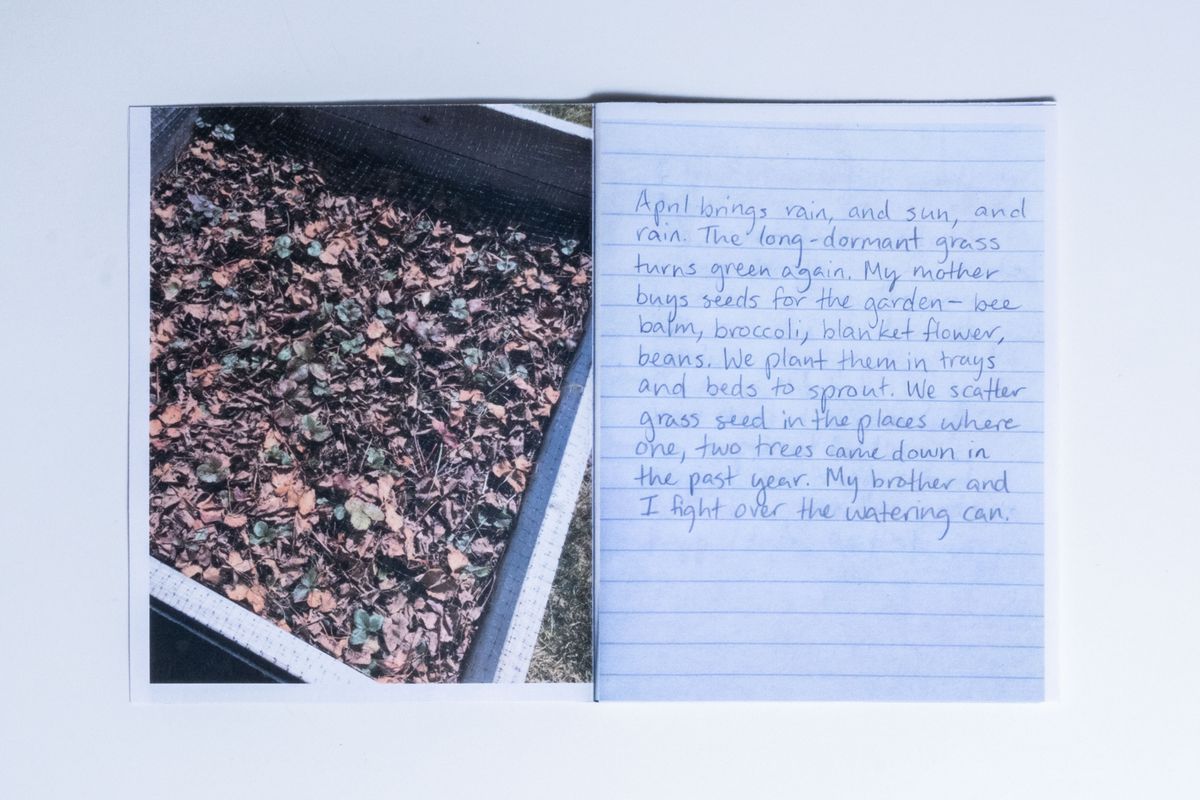 April brings rain, and sun, and
rain. The long-dormant grass
turns green again. My mother
buys seeds for the garden – bee
balm, broccoli, blanket flower,
beans. We plant them in trays
and beds to sprout. We scatter
grass seed in the places where
one, two trees came down in
the past year. My brother and
I fight over the watering can.